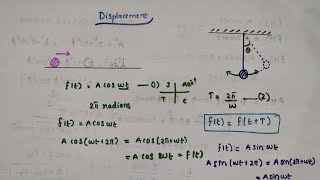 Displacement
θ
f(t) = A cos ωt —(1)
S
A
T
C
2π radians
T = 2π/ω —(2)
f(t) = f(t+T)
A cos(ωt+2π) = A cos(2π+ωt)
= A cos ωt = f(t)
f(t) = A sin ωt
A sin(ωt+2π) = A sin(2π+ωt)
= A sin ωt